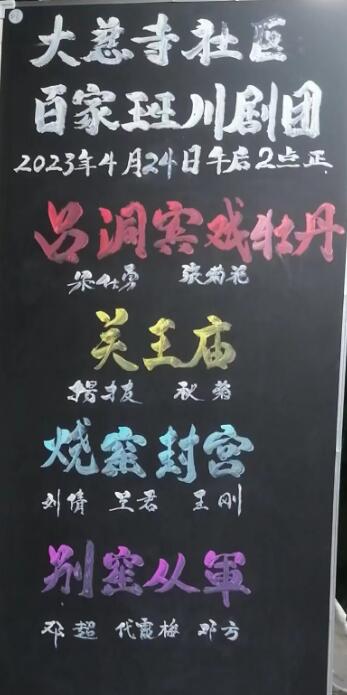 大慈寺社区
百家班川剧团
2023年4月24日午后2点正
吕洞宾戏牡丹
梁仕勇 张菊花
关王庙
杨友 秋菊
烧窑封宫
刘倩 兰君 王刚
别窑从軍
邓超 代霞梅 邓方